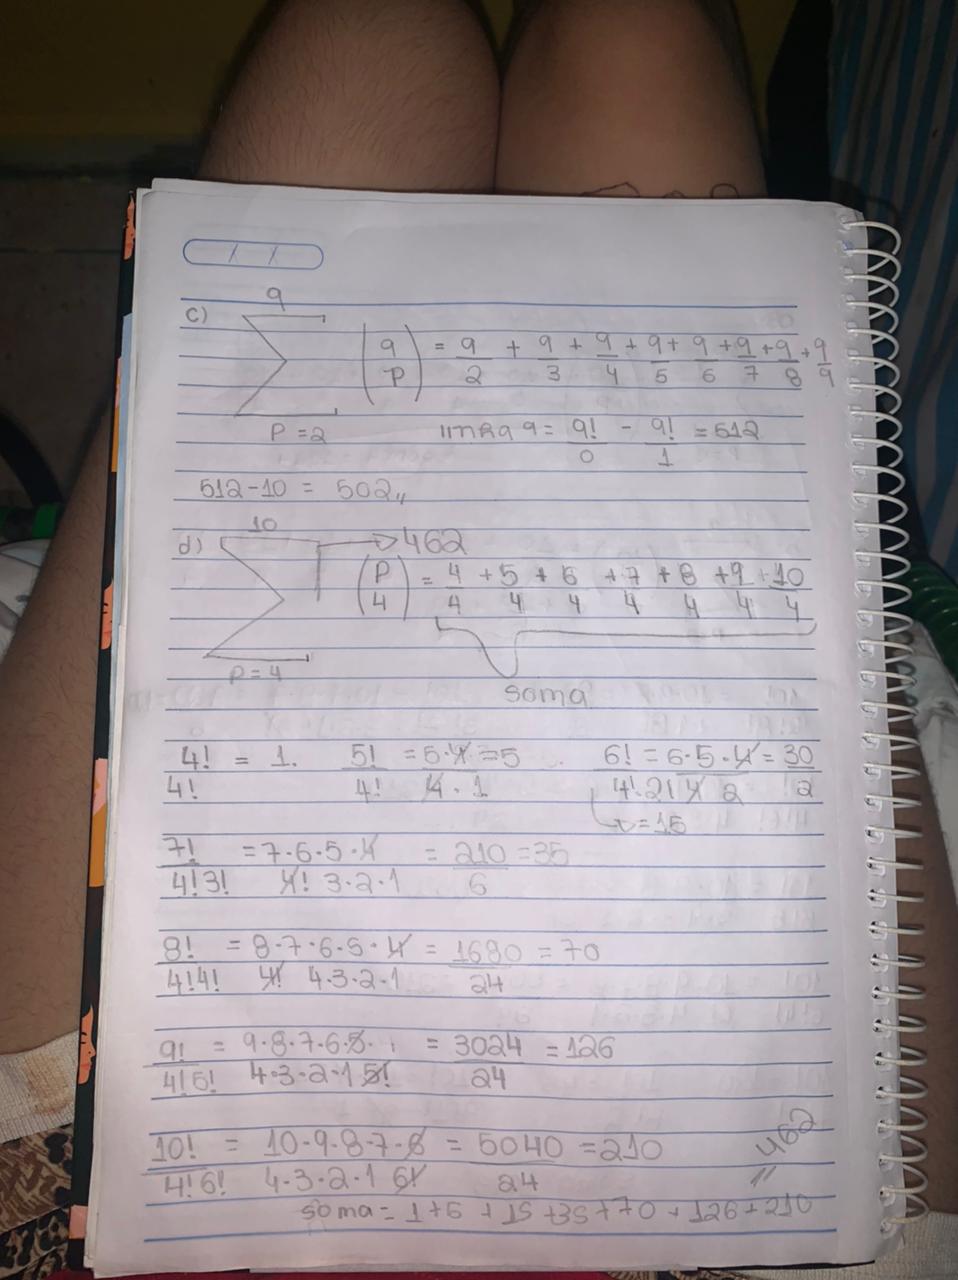 / /
9
c) ∑ (9/p) = 9/2 + 9/3 + 9/4 + 9/5 + 9/6 + 9/7 + 9/8 + 9/9
P=2 linha 9 = 9!/0 - 9!/1 = 512
512-10 = 502,,
10
d) ∑ → 462
(P/4) = 4/4 + 5/4 + 6/4 + 7/4 + 8/4 + 9/4 + 10/4
P=4
soma
4!/4! = 1. 5!/4! = 5·4/4·1 = 5 6!/4!2! = 6·5·4/4 2 = 30/2
→ = 15
7!/4!3! = 7·6·5·4/4! 3·2·1 = 210/6 = 35
8!/4!4! = 8·7·6·5·4/4! 4·3·2·1 = 1680/24 = 70
9!/4!5! = 9·8·7·6·5/4·3·2·1 5! = 3024/24 = 126
10!/4!6! = 10·9·8·7·6/4·3·2·1 6! = 5040/24 = 210
soma = 1+5+15+35+70+126+210
= 462